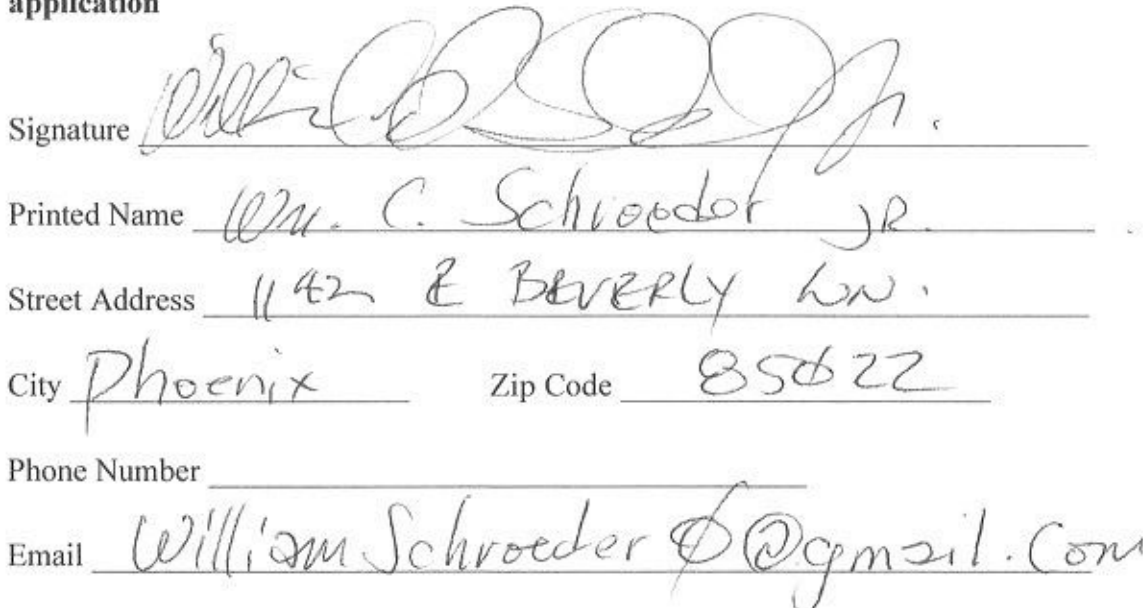 application
Signature William C Schroeder Jr.
Printed Name Wm. C. Schroeder JR.
Street Address 1142 E BEVERLY LN.
City Phoenix Zip Code 85022
Phone Number
Email WilliamSchroeder0@gmail.com